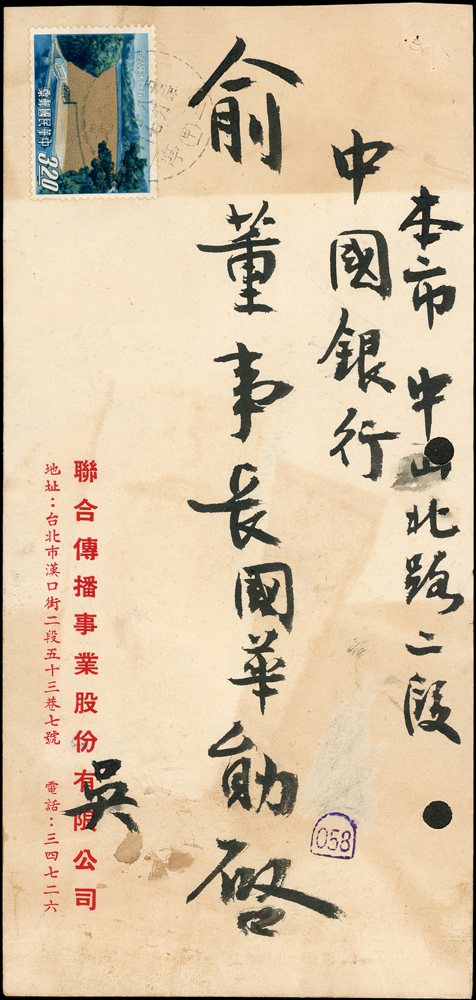 本市中山北路二段
中國銀行
俞董事長國華勛啓
吳
聯合傳播事業股份有限公司
地址：台北市漢口街二段五十三巷七號 電話：三四七二六
中華民國郵票
3.20
058